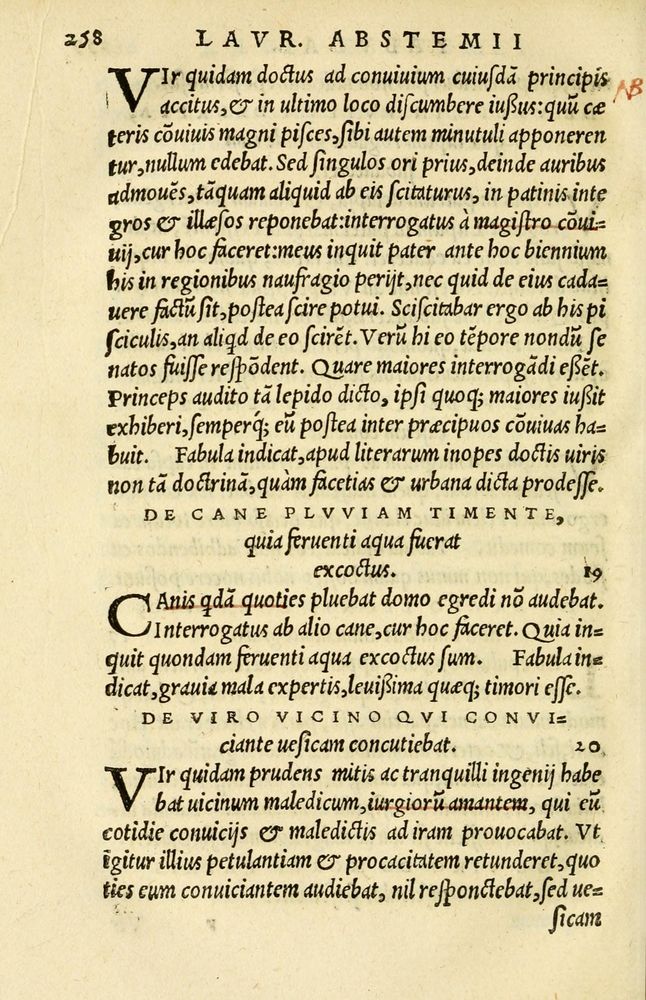 258 LAVR. ABSTEMII
VIr quidam doctus ad conuiuium cuiusdā principis
NB
accitus,& in ultimo loco discumbere iußus:quū cæ
teris cōuiuis magni pisces,sibi autem minutuli apponeren
tur,nullum edebat. Sed singulos ori prius,deinde auribus
admouēs,tāquam aliquid ab eis scitaturus, in patinis inte
gros & illæsos reponebat:interrogatus à magistro cōui-
uij,cur hoc faceret:meus inquit pater ante hoc biennium
his in regionibus naufragio perijt,nec quid de eius cada-
uere factū sit,postea scire potui. Sciscitabar ergo ab his pi
sciculis,an aliqd de eo scirēt. Verū hi eo tēpore nondū se
natos fuisse respōdent. Quare maiores interrogādi eßēt.
Princeps audito tā lepido dicto, ipsi quoq; maiores iußit
exhiberi,semperq́; eū postea inter præcipuos cōuiuas ha-
buit. Fabula indicat,apud literarum inopes doctis uiris
non tā doctrinā,quàm facetias & urbana dicta prodesse.
DE CANE PLVVIAM TIMENTE,
quia feruenti aqua fuerat
excoctus. 19
CAnis qdā quoties pluebat domo egredi nō audebat.
Interrogatus ab alio cane,cur hoc faceret. Quia in-
quit quondam feruenti aqua excoctus sum. Fabula in-
dicat,grauia mala expertis,leuißima quæq; timori esse.
DE VIRO VICINO QVI CONVI-
ciante uesicam concutiebat. 20
VIr quidam prudens mitis ac tranquilli ingenij habe
bat uicinum maledicum,iurgiorū amantem, qui eū
cotidie conuicijs & maledictis ad iram prouocabat. Vt
igitur illius petulantiam & procacitatem retunderet,quo
ties eum conuiciantem audiebat, nil respondebat,sed ue-
sicam